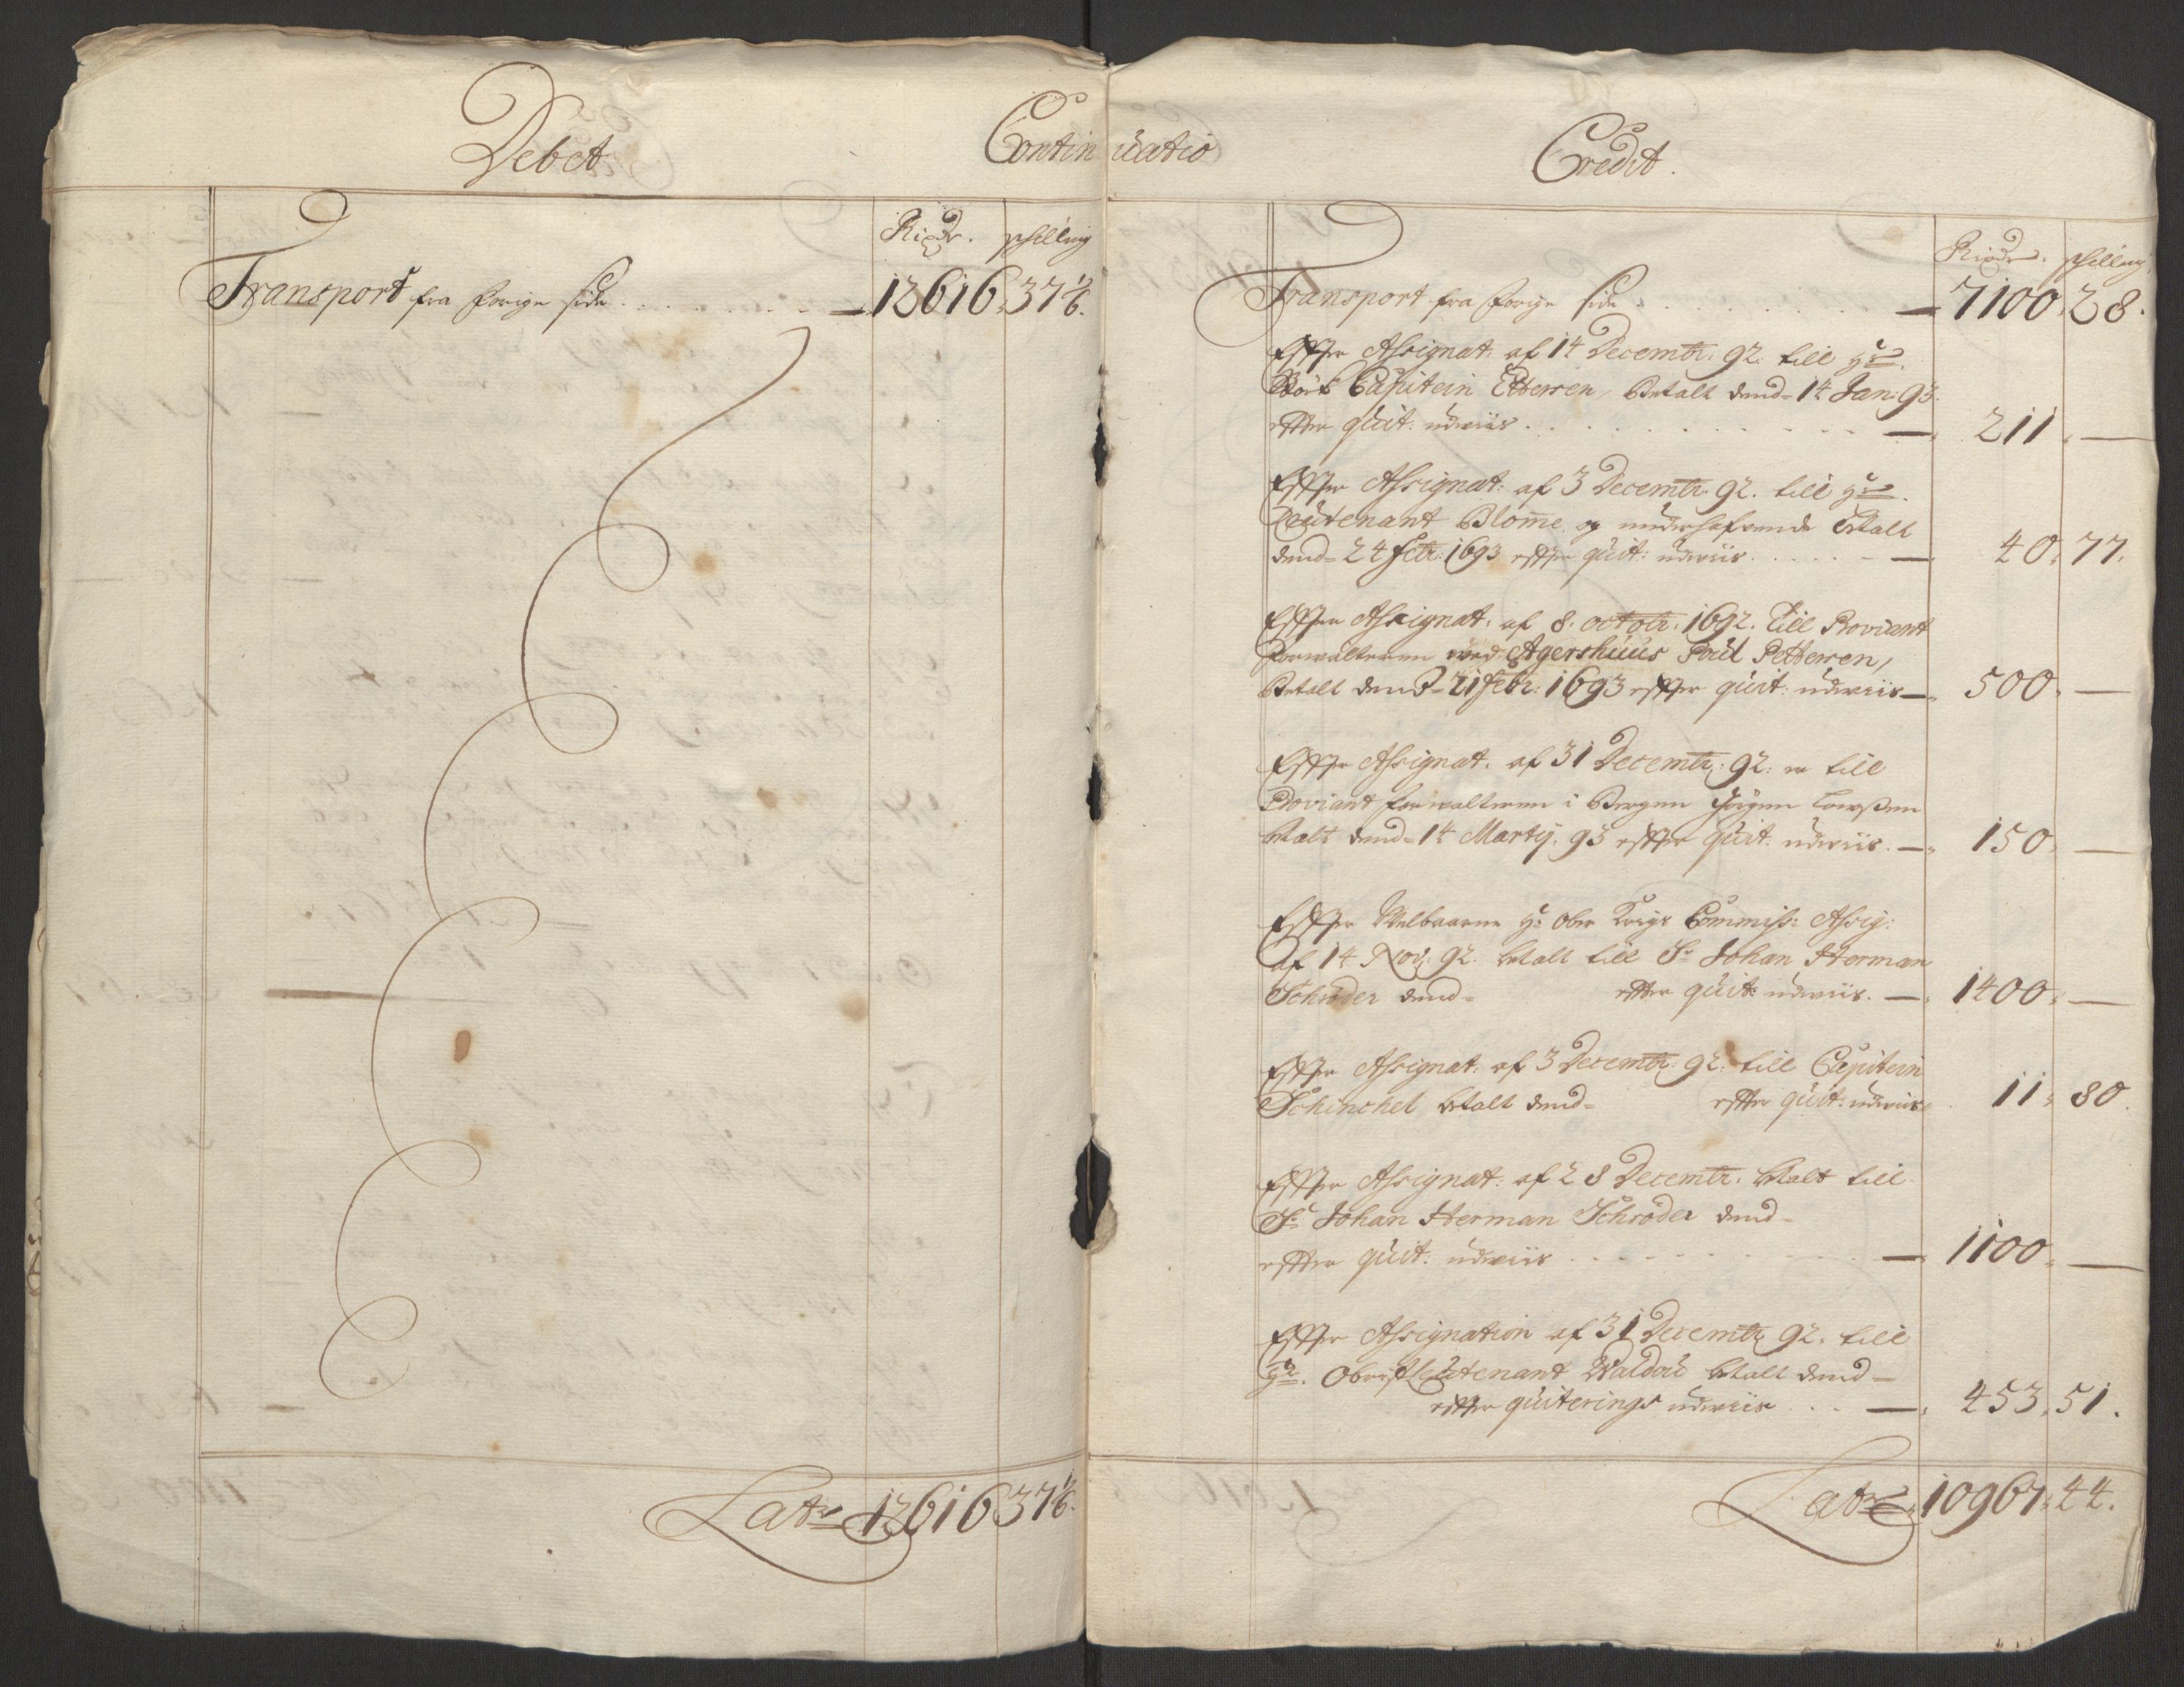 Debet
Continuatio
Rixdr. schilling
Transport fra forige side . . . . . . . — 12616 37½.
Latr 12616 37½.
Credit.
Rixdr. schilling
Transport fra forige side . . . . . . . — 7100. 28.
Effter Assignat: af 14 Decembr. 92. till Hr.
Capitein betalt dend= 14 Jan: 93.
effter quit: udwiis . . . . . . . — 211. —
Effter Assignat: af 3 Decembr. 92. till Hr.
Leutenant Blome og betalt
dend= 24 Febr: 1693 effter quit: udwiis . . . . . — 40. 77.
Effter Assignat: af 8. octobr: 1692. till Proviant
forwalteren wed Agershuus Poul Pettersen,
Betalt dend= 21 Febr: 1693 effter quit: udwiis — 500. —
Effter Assignat. af 31 Decembr: 92. till
Proviant forwalteren i Bergen
betalt dend= 14 Martij. 93 effter quit: udwiis. — 150. —
Effter Welbaarne Hr Ober Krigs Commiss: Assig:
af 14 Nov: 92. betalt till Sr Johan Herman
Schrøder dend= effter quit: udwiis. — 1400. —
Effter Assignat: af 3 Decembr. 92. till Capitein
Schinckel betalt dend= effter quit: udwiis 11. 80.
Effter Assignat: af 28 Decembr. betalt till
Sr Johan Herman Schrøder dend=
effter quit: udwiis . . . . . . . — 1100. —
Effter Assignation af 31 Decembr 92. till
Hr. Obristleutenant Waldau betalt dend=
effter quiterings udwiis . . . — 453. 51.
Latr 10967. 44.